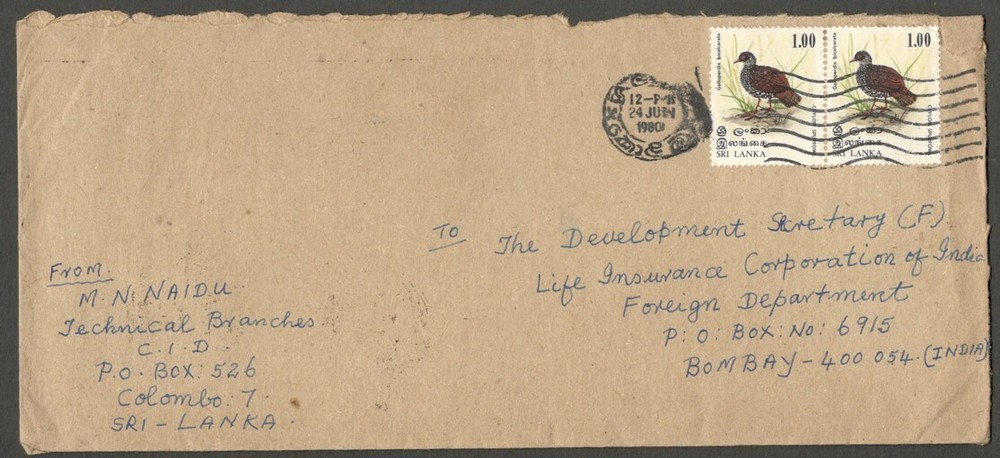 Galloperdix bicalcarata
1.00
CEYLON SPURFOWL
ශ්‍රී ලංකා
இலங்கை
SRI LANKA
Galloperdix bicalcarata
1.00
CEYLON SPURFOWL
ශ්‍රී ලංකා
இலங்கை
SRI LANKA
12-PM
24 JUN
1980
To
The Development Secretary (F).
Life Insurance Corporation of India
Foreign Department
P: O: BOX: No: 6915
BOMBAY - 400 054. (INDIA)
From.
M. N. NAIDU.
Technical Branches
C. I. D.
P.O. BOX: 526
Colombo. 7.
SRI - LANKA.